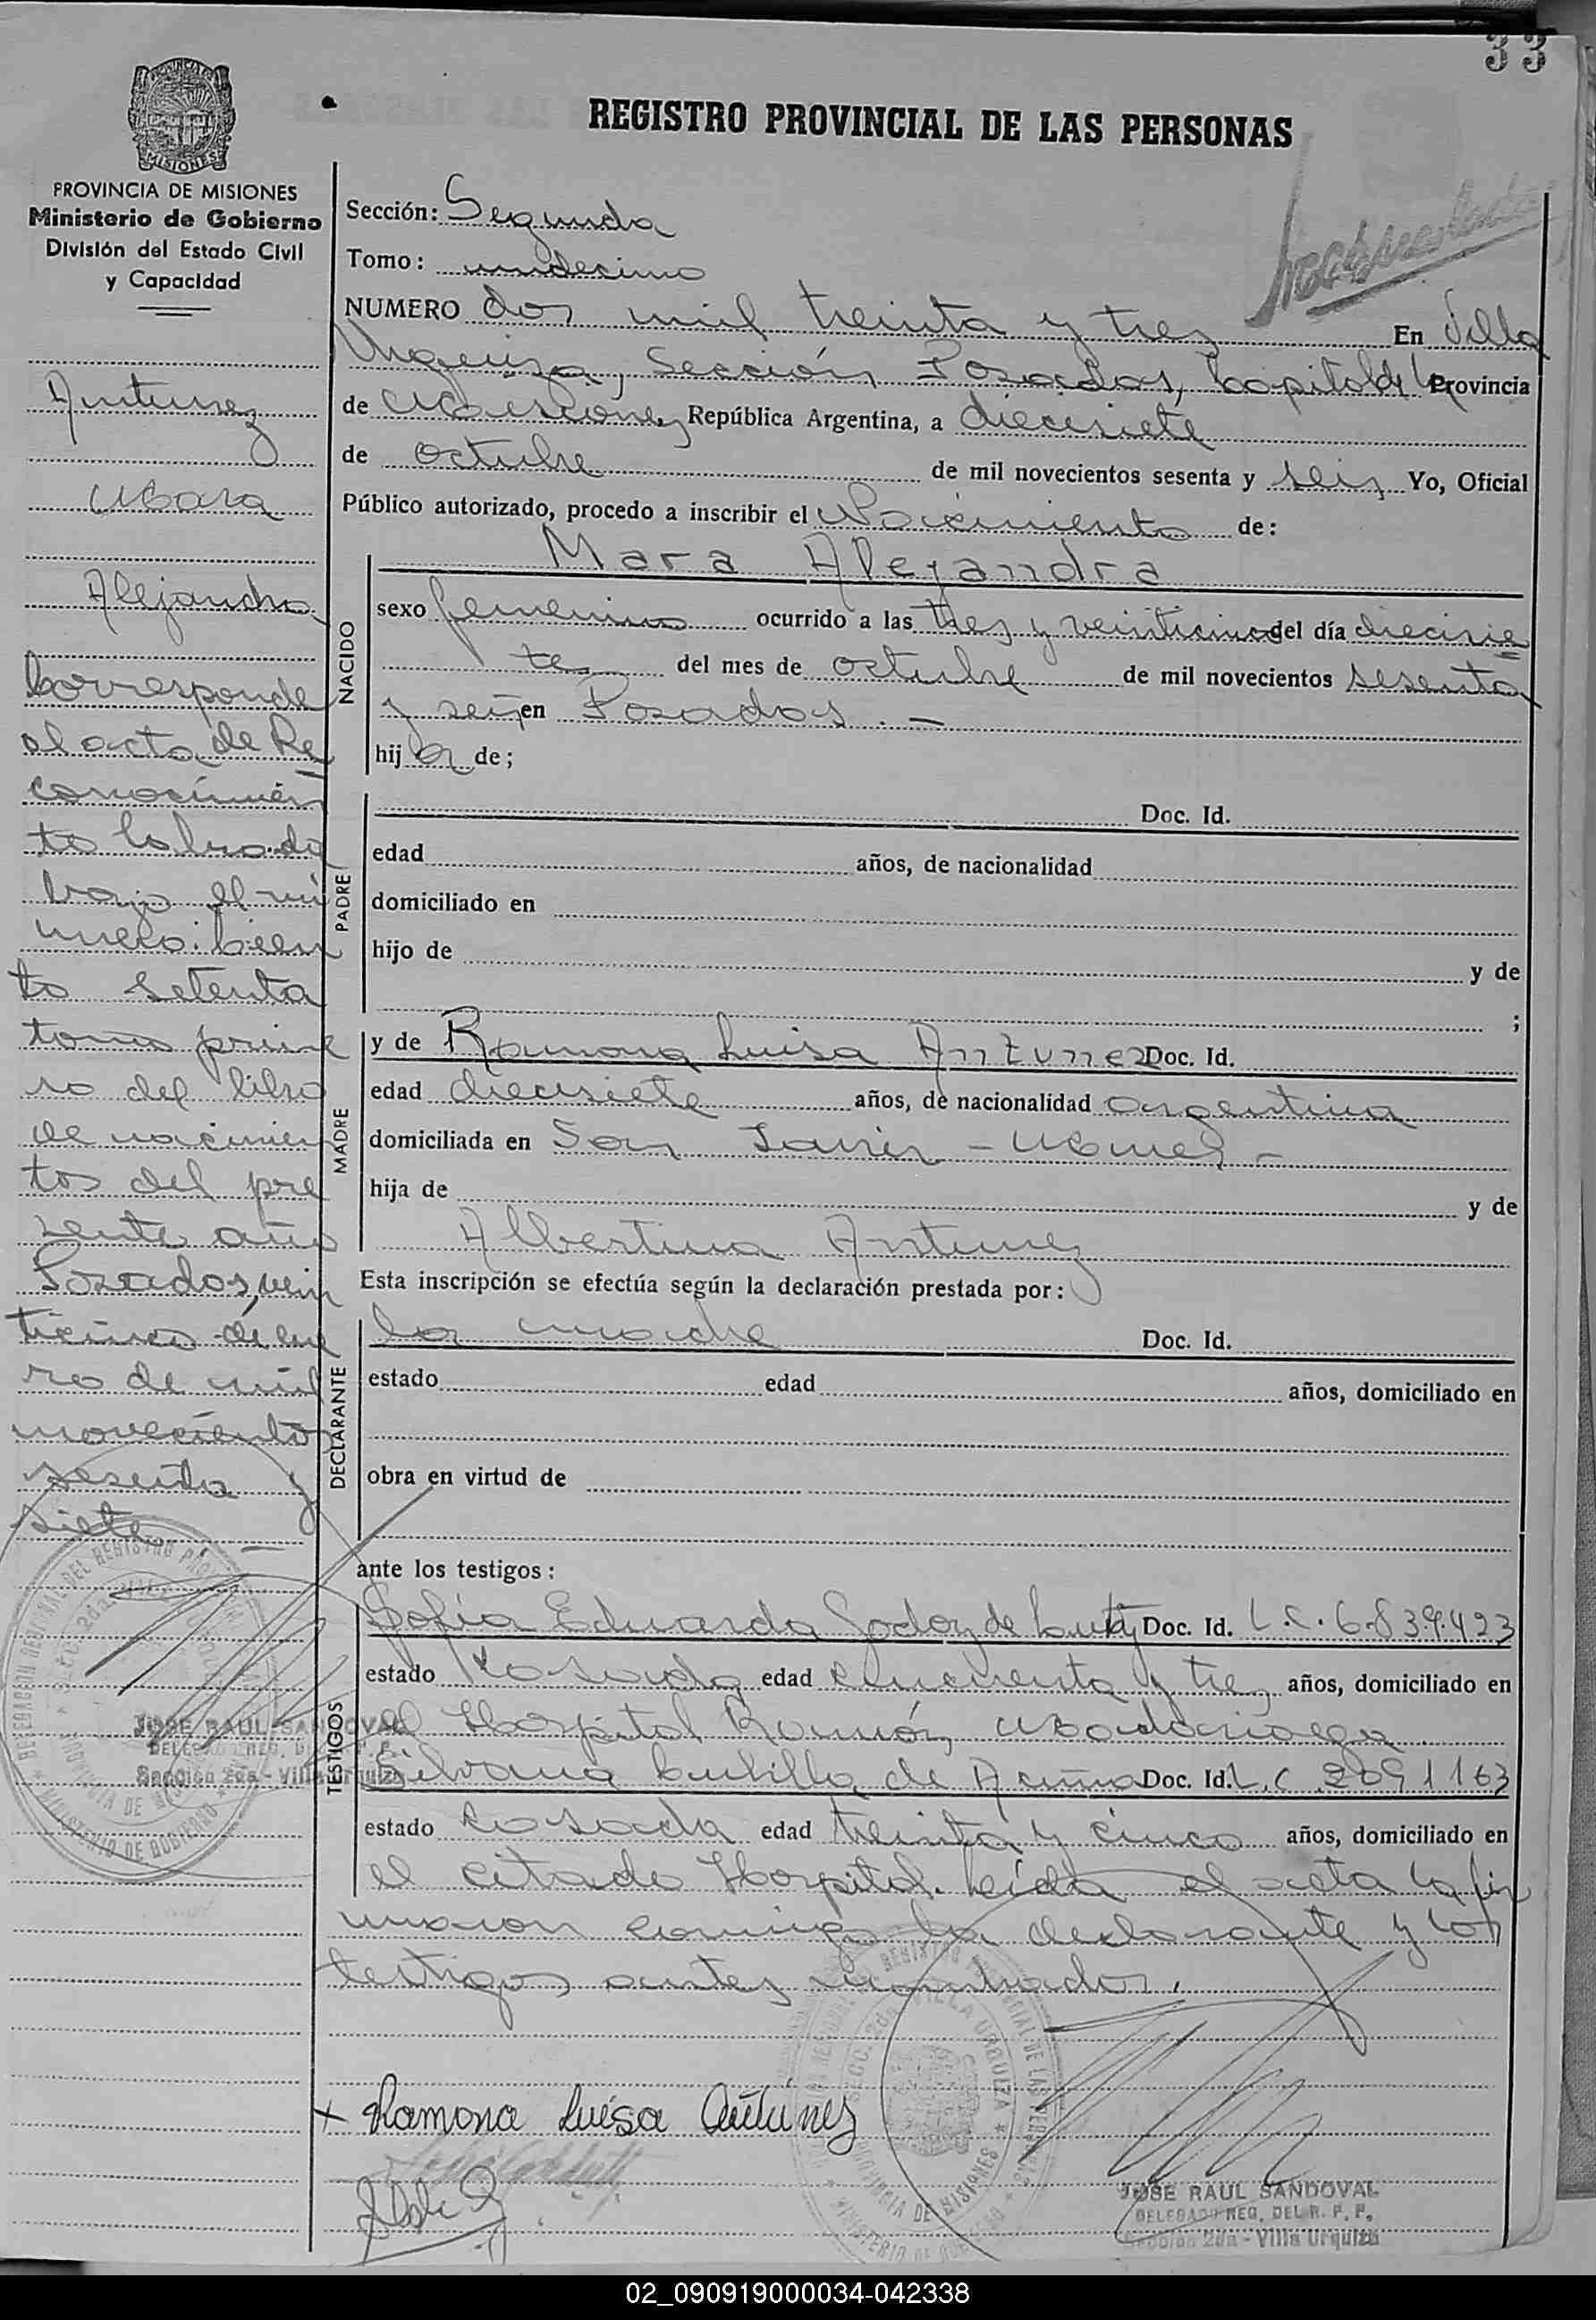 33
REGISTRO PROVINCIAL DE LAS PERSONAS
PROVINCIA DE MISIONES
Ministerio de Gobierno
División del Estado Civil
y Capacidad
Antunez
Mara
Alejandra
Corresponde
al acta de Re
conocimien
to labrada
bajo el nú
mero: Cien
to setenta
tomo prime
ro del libro
de nacimien
tos del pre
sente año
Posadas, vein
ticinco de ene
ro de mil
novecientos
sesenta y
siete
Sección: Segunda
Tomo: undecimo
NUMERO dos mil treinta y tres En Villa
Urquiza, Sección Posadas, Capital de la Provincia
de Misiones, República Argentina, a diecisiete
de octubre de mil novecientos sesenta y seis Yo, Oficial
Público autorizado, procedo a inscribir el Nacimiento de:
NACIDO
Mara Alejandra
sexo femenino ocurrido a las tres y veinticinco del día diecisie
te del mes de octubre de mil novecientos sesenta
y seis en Posadas. -
hija de;
PADRE
Doc. Id.
edad años, de nacionalidad
domiciliado en
hijo de y de
;
MADRE
y de Ramona Luisa Antunez Doc. Id.
edad diecisiete años, de nacionalidad argentina
domiciliada en San Javier - Mnes -
hija de y de
Albertina Antunez
Esta inscripción se efectúa según la declaración prestada por:
DECLARANTE
la madre Doc. Id.
estado edad años, domiciliado en
obra en virtud de
ante los testigos:
TESTIGOS
Sofía Eduarda Godoy de Doc. Id. L.C. 6.839.423
estado Casada edad cincuenta y tres años, domiciliado en
el Hospital Ramón Madariaga
Silvana de Acuña Doc. Id. L.C 2091163
estado Casada edad treinta y cinco años, domiciliado en
el citado Hospital. Leída el acta la fir
maron conmigo la declarante y los
testigos antes nombrados.
Ramona Luisa Antúnez
JOSE RAUL SANDOVAL
DELEGADO REG. DEL R. P. P.
Sección 2da - Villa Urquiza
JOSE RAUL SANDOVAL
DELEGADO REG. DEL R. P. P.
Sección 2da - Villa Urquiza
02_090919000034-042338